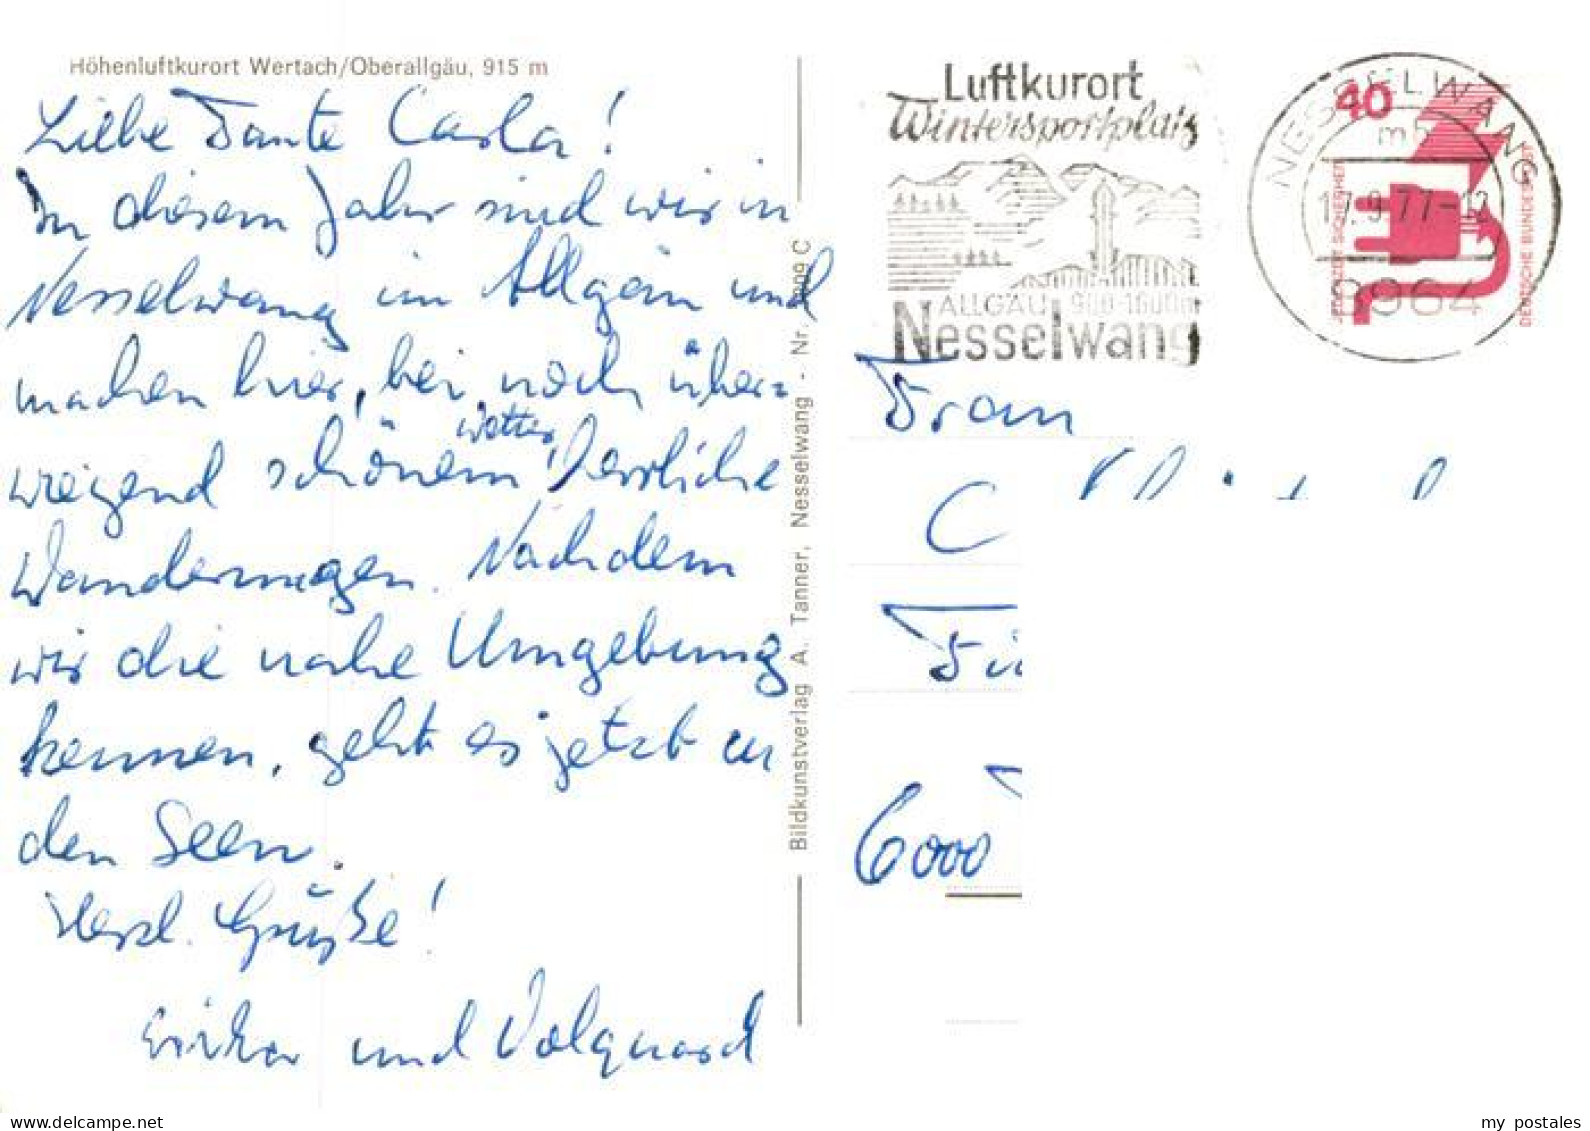 Höhenluftkurort Wertach/Oberallgäu, 915 m
Liebe Tante Carla!
In diesem Jahr sind wir in
Nesselwang im Allgäu und
machen hier, bei noch über-
wiegend schönem Wetter, herrliche
Wanderungen. Nachdem
wir die nahe Umgebung
kennen, geht es jetzt zu
den Seen.
Herzl. Grüße!
und Volquard
Bildkunstverlag A. Tanner, Nesselwang - Nr.
Luftkurort
Wintersportplatz
ALLGÄU 900-1600m
Nesselwang
NESSELWANG
mb
17.9.77-12
8964
40
JEDERZEIT SICHERHEIT
DEUTSCHE BUNDESPOST
Frau
C
6000
my postales